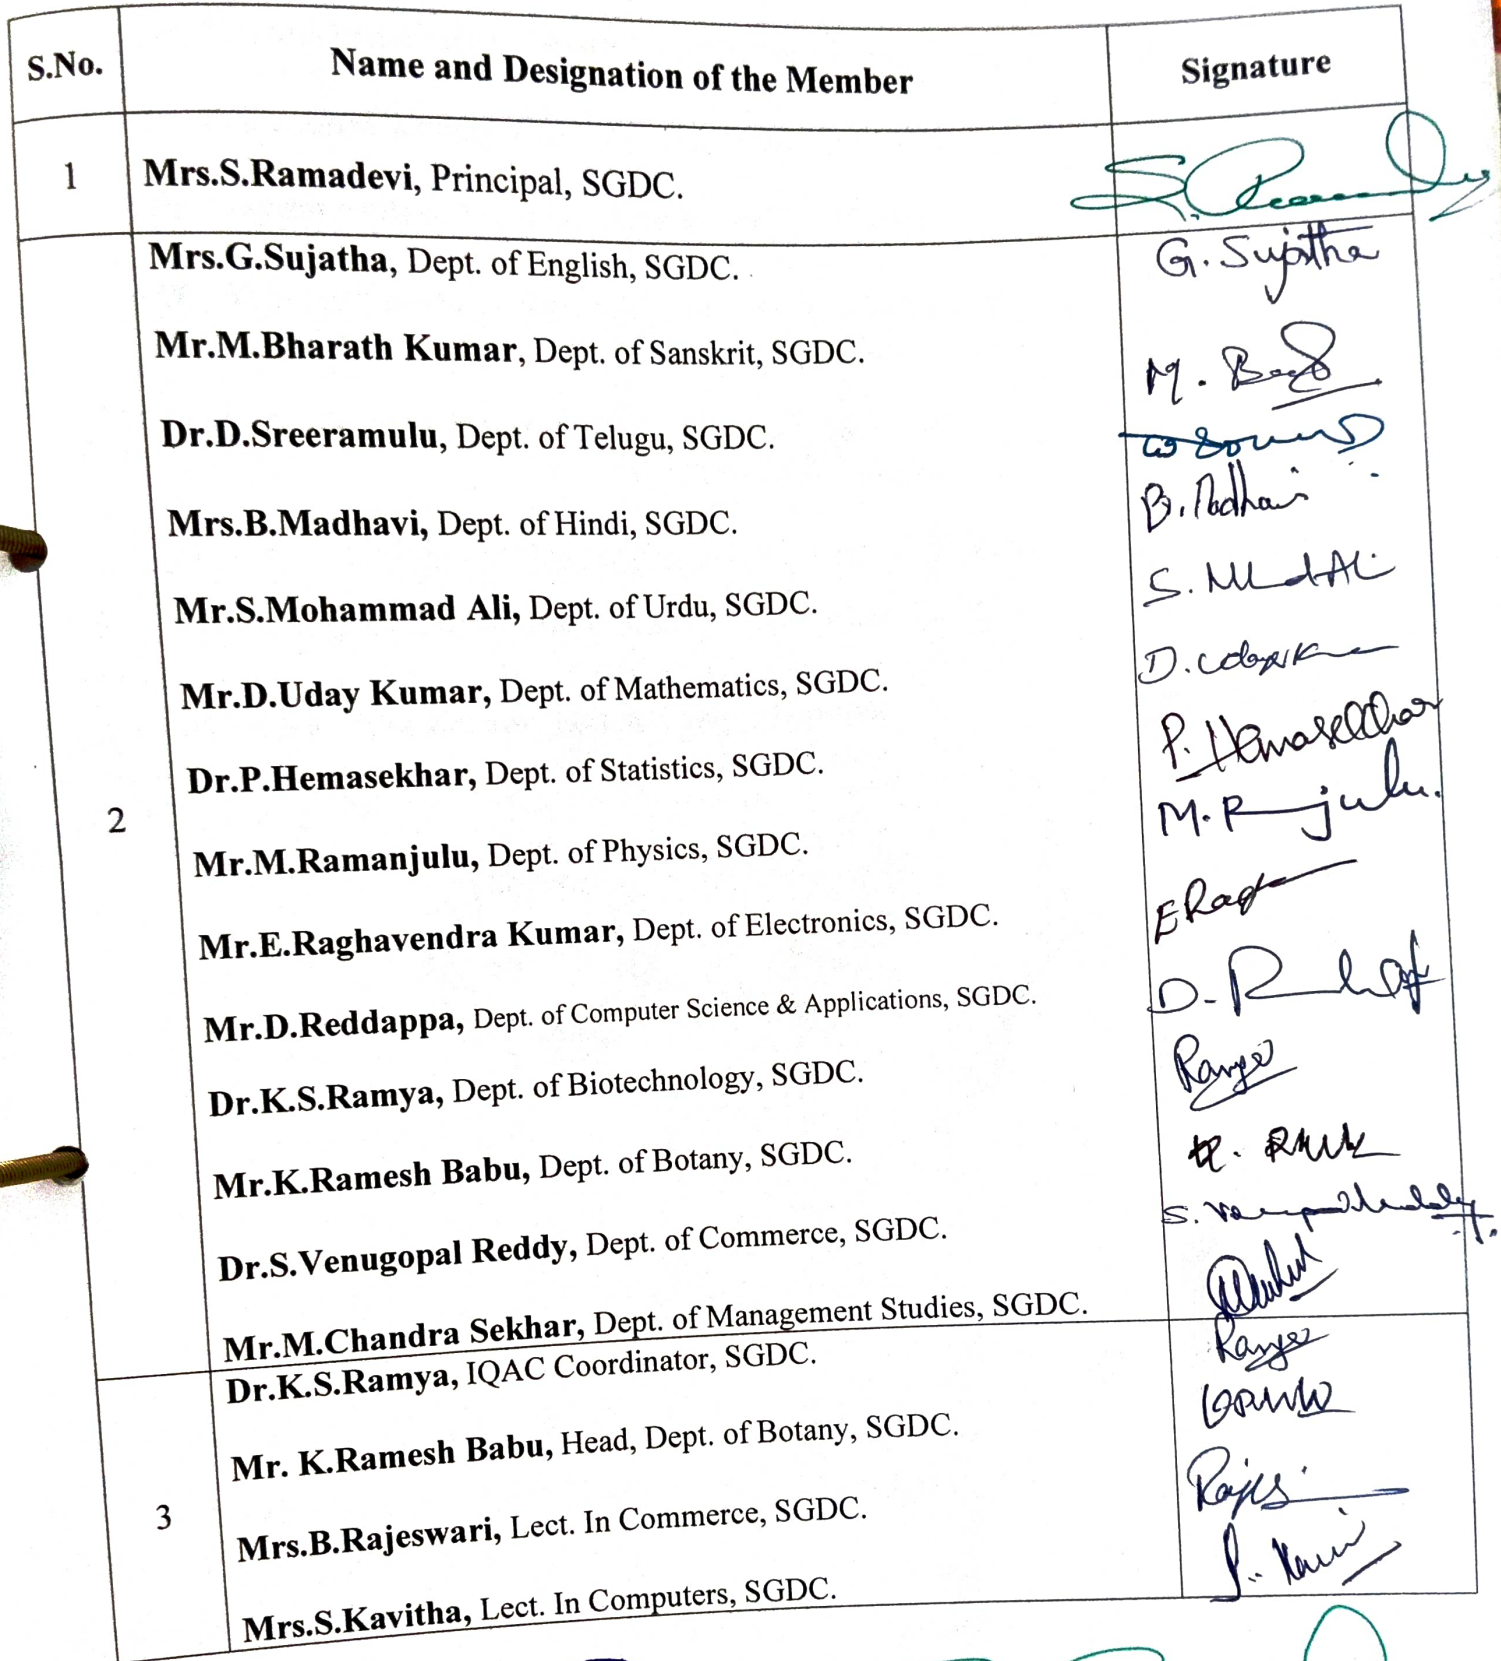 S.No. Name and Designation of the Member Signature
1 Mrs.S.Ramadevi, Principal, SGDC.
Mrs.G.Sujatha, Dept. of English, SGDC. G. Sujatha
Mr.M.Bharath Kumar, Dept. of Sanskrit, SGDC. M.
Dr.D.Sreeramulu, Dept. of Telugu, SGDC.
Mrs.B.Madhavi, Dept. of Hindi, SGDC. B. Madhavi
Mr.S.Mohammad Ali, Dept. of Urdu, SGDC. S.
Mr.D.Uday Kumar, Dept. of Mathematics, SGDC. D.
Dr.P.Hemasekhar, Dept. of Statistics, SGDC. P. Hemasekhar
2 Mr.M.Ramanjulu, Dept. of Physics, SGDC. M.
Mr.E.Raghavendra Kumar, Dept. of Electronics, SGDC.
Mr.D.Reddappa, Dept. of Computer Science & Applications, SGDC. D.
Dr.K.S.Ramya, Dept. of Biotechnology, SGDC. Ramya
Mr.K.Ramesh Babu, Dept. of Botany, SGDC.
Dr.S.Venugopal Reddy, Dept. of Commerce, SGDC. S.
Mr.M.Chandra Sekhar, Dept. of Management Studies, SGDC.
Dr.K.S.Ramya, IQAC Coordinator, SGDC. Ramya
Mr. K.Ramesh Babu, Head, Dept. of Botany, SGDC.
3 Mrs.B.Rajeswari, Lect. In Commerce, SGDC.
Mrs.S.Kavitha, Lect. In Computers, SGDC.